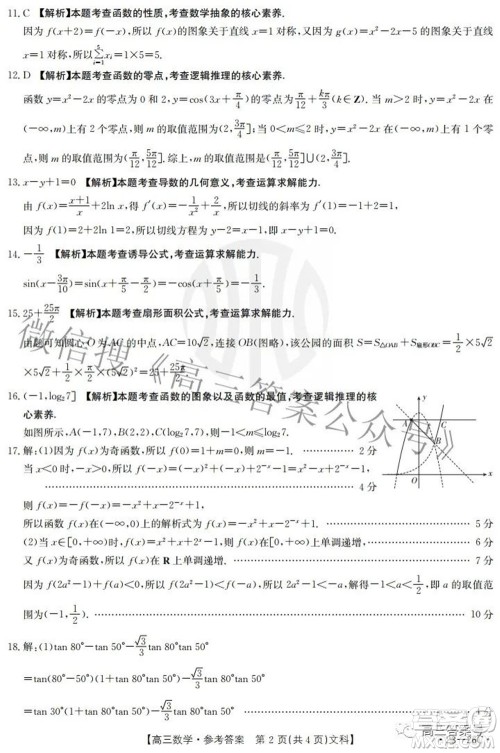 11. C 【解析】本题考查函数的性质,考查数学抽象的核心素养.
因为 f(x+2)=f(-x),所以 f(x)的图象关于直线 x=1 对称,又因为 g(x)=x²-2x-5 的图象关于直线
x=1 对称,所以∑xᵢ=1×5=5.
12. D 【解析】本题考查函数的零点,考查逻辑推理的核心素养.
函数 y=x²-2x 的零点为 0 和 2,y=cos(3x+π/4)的零点为π/12+kπ/3(k∈Z).当 m>2 时,y=x²-2x 在
(-∞,m)上有 2 个零点,则 m 的取值范围为(2,3π/4];当 0<m≤2 时,y=x²-2x 在(-∞,m)上有 1 个零
点,则 m 的取值范围为(π/12,5π/12].综上,m 的取值范围是(π/12,5π/12]∪(2,3π/4].
13. x-y+1=0 【解析】本题考查导数的几何意义,考查运算求解能力.
由 f(x)=(x+1)/x+2ln x,得 f′(x)=-1/x²+2/x,所以切线的斜率为 f′(1)=-1+2=1,
因为 f(1)=2+2ln 1=2,所以切线方程为 y-2=x-1,即 x-y+1=0.
14. -1/3 【解析】本题考查诱导公式,考查运算求解能力.
sin(x-3π/10)=sin(x+π/5-π/2)=-cos(x+π/5)=-1/3.
15. 25+25π/2 【解析】本题考查扇形面积公式,考查运算求解能力.
由题可知圆心 O 为 AC 的中点,AC=10√2,连接 OB(图略),该公园的面积 S=S△OAB+S扇形OBC=1/2×5√2
×5√2+1/2×π/2×(5√2)²=25+25π/2.
16. (-1,log₂7] 【解析】本题考查函数的图象以及函数的最值,考查逻辑推理的核
心素养.
如图所示,A(-1,7),B(2,2),C(log₂7,7),则-1<m≤log₂7.
y
A
C
B
O
x
17. 解:(1)因为 f(x)为奇函数,所以 f(0)=1+m=0,则 m=-1. 2 分
当 x<0 时,-x>0,所以 f(-x)=(-x)²+(-x)+2⁻ˣ-1=x²-x+2⁻ˣ-1,
4 分
则 f(x)=-f(-x)=-x²+x-2⁻ˣ+1,
所以函数 f(x)在(-∞,0)上的解析式为 f(x)=-x²+x-2⁻ˣ+1. 5 分
(2)当 x∈[0,+∞)时,f(x)=x²+x+2ˣ-1,则 f(x)在[0,+∞)上单调递增, 6 分
又 f(x)为奇函数,所以 f(x)在 R 上单调递增. 7 分
因为 f(2a²-1)+f(a)<0,所以 f(2a²-1)<f(-a),所以 2a²-1<-a,解得-1<a<1/2,即 a 的取值范
围为(-1,1/2). 10 分
18. 解:(1)tan 80°-tan 50°-√3/3 tan 80°tan 50°
=tan(80°-50°)(1+tan 80°tan 50°)-√3/3 tan 80°tan 50°
=tan 30°(1+tan 80°tan 50°)-√3/3 tan 80°tan 50°
【高三数学·参考答案 第 2 页(共 4 页)文科】
微信搜《高三答案公众号》